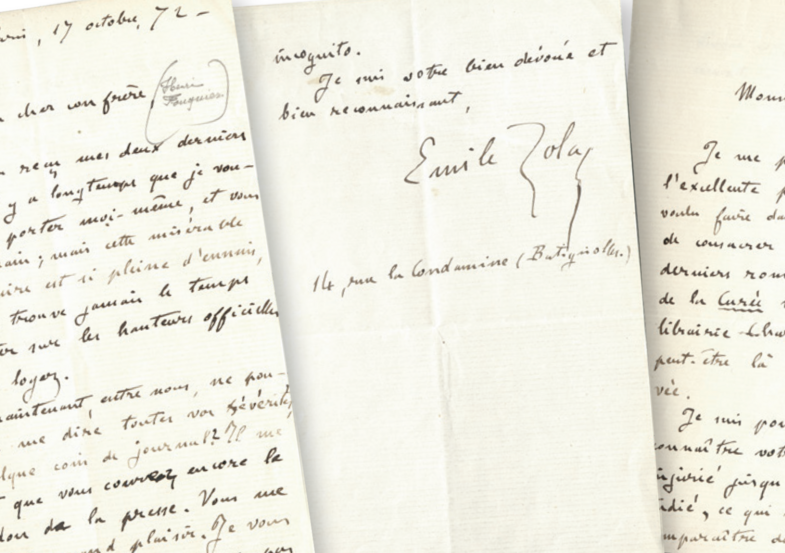 17 octobre, 72 –
cher confrère,
(Henri
Fouquier)
mes deux derniers
y a longtemps que je vou-
porter moi-même, et vous
main ; mais cette misérable
est si pleine d'ennuis,
trouve jamais le temps
sur les hauteurs officielles
logez.
maintenant, entre nous, ne pou-
me dire toutes vos sévérités
coin de journal ? Il me
que vous couvrez encore la
de la presse. Vous me
plaisir. Je vous
incognito.
Je suis votre bien dévoué et
bien reconnaissant,
Emile Zola
14, rue la Condamine (Batignolles.)
Je me p
l'excellente p
voulu faire da
de consacrer
derniers rom
de la Curée
librairie
peut-être là
vée.
Je suis pou
connaître vot
injurié jusqu
, ce qui